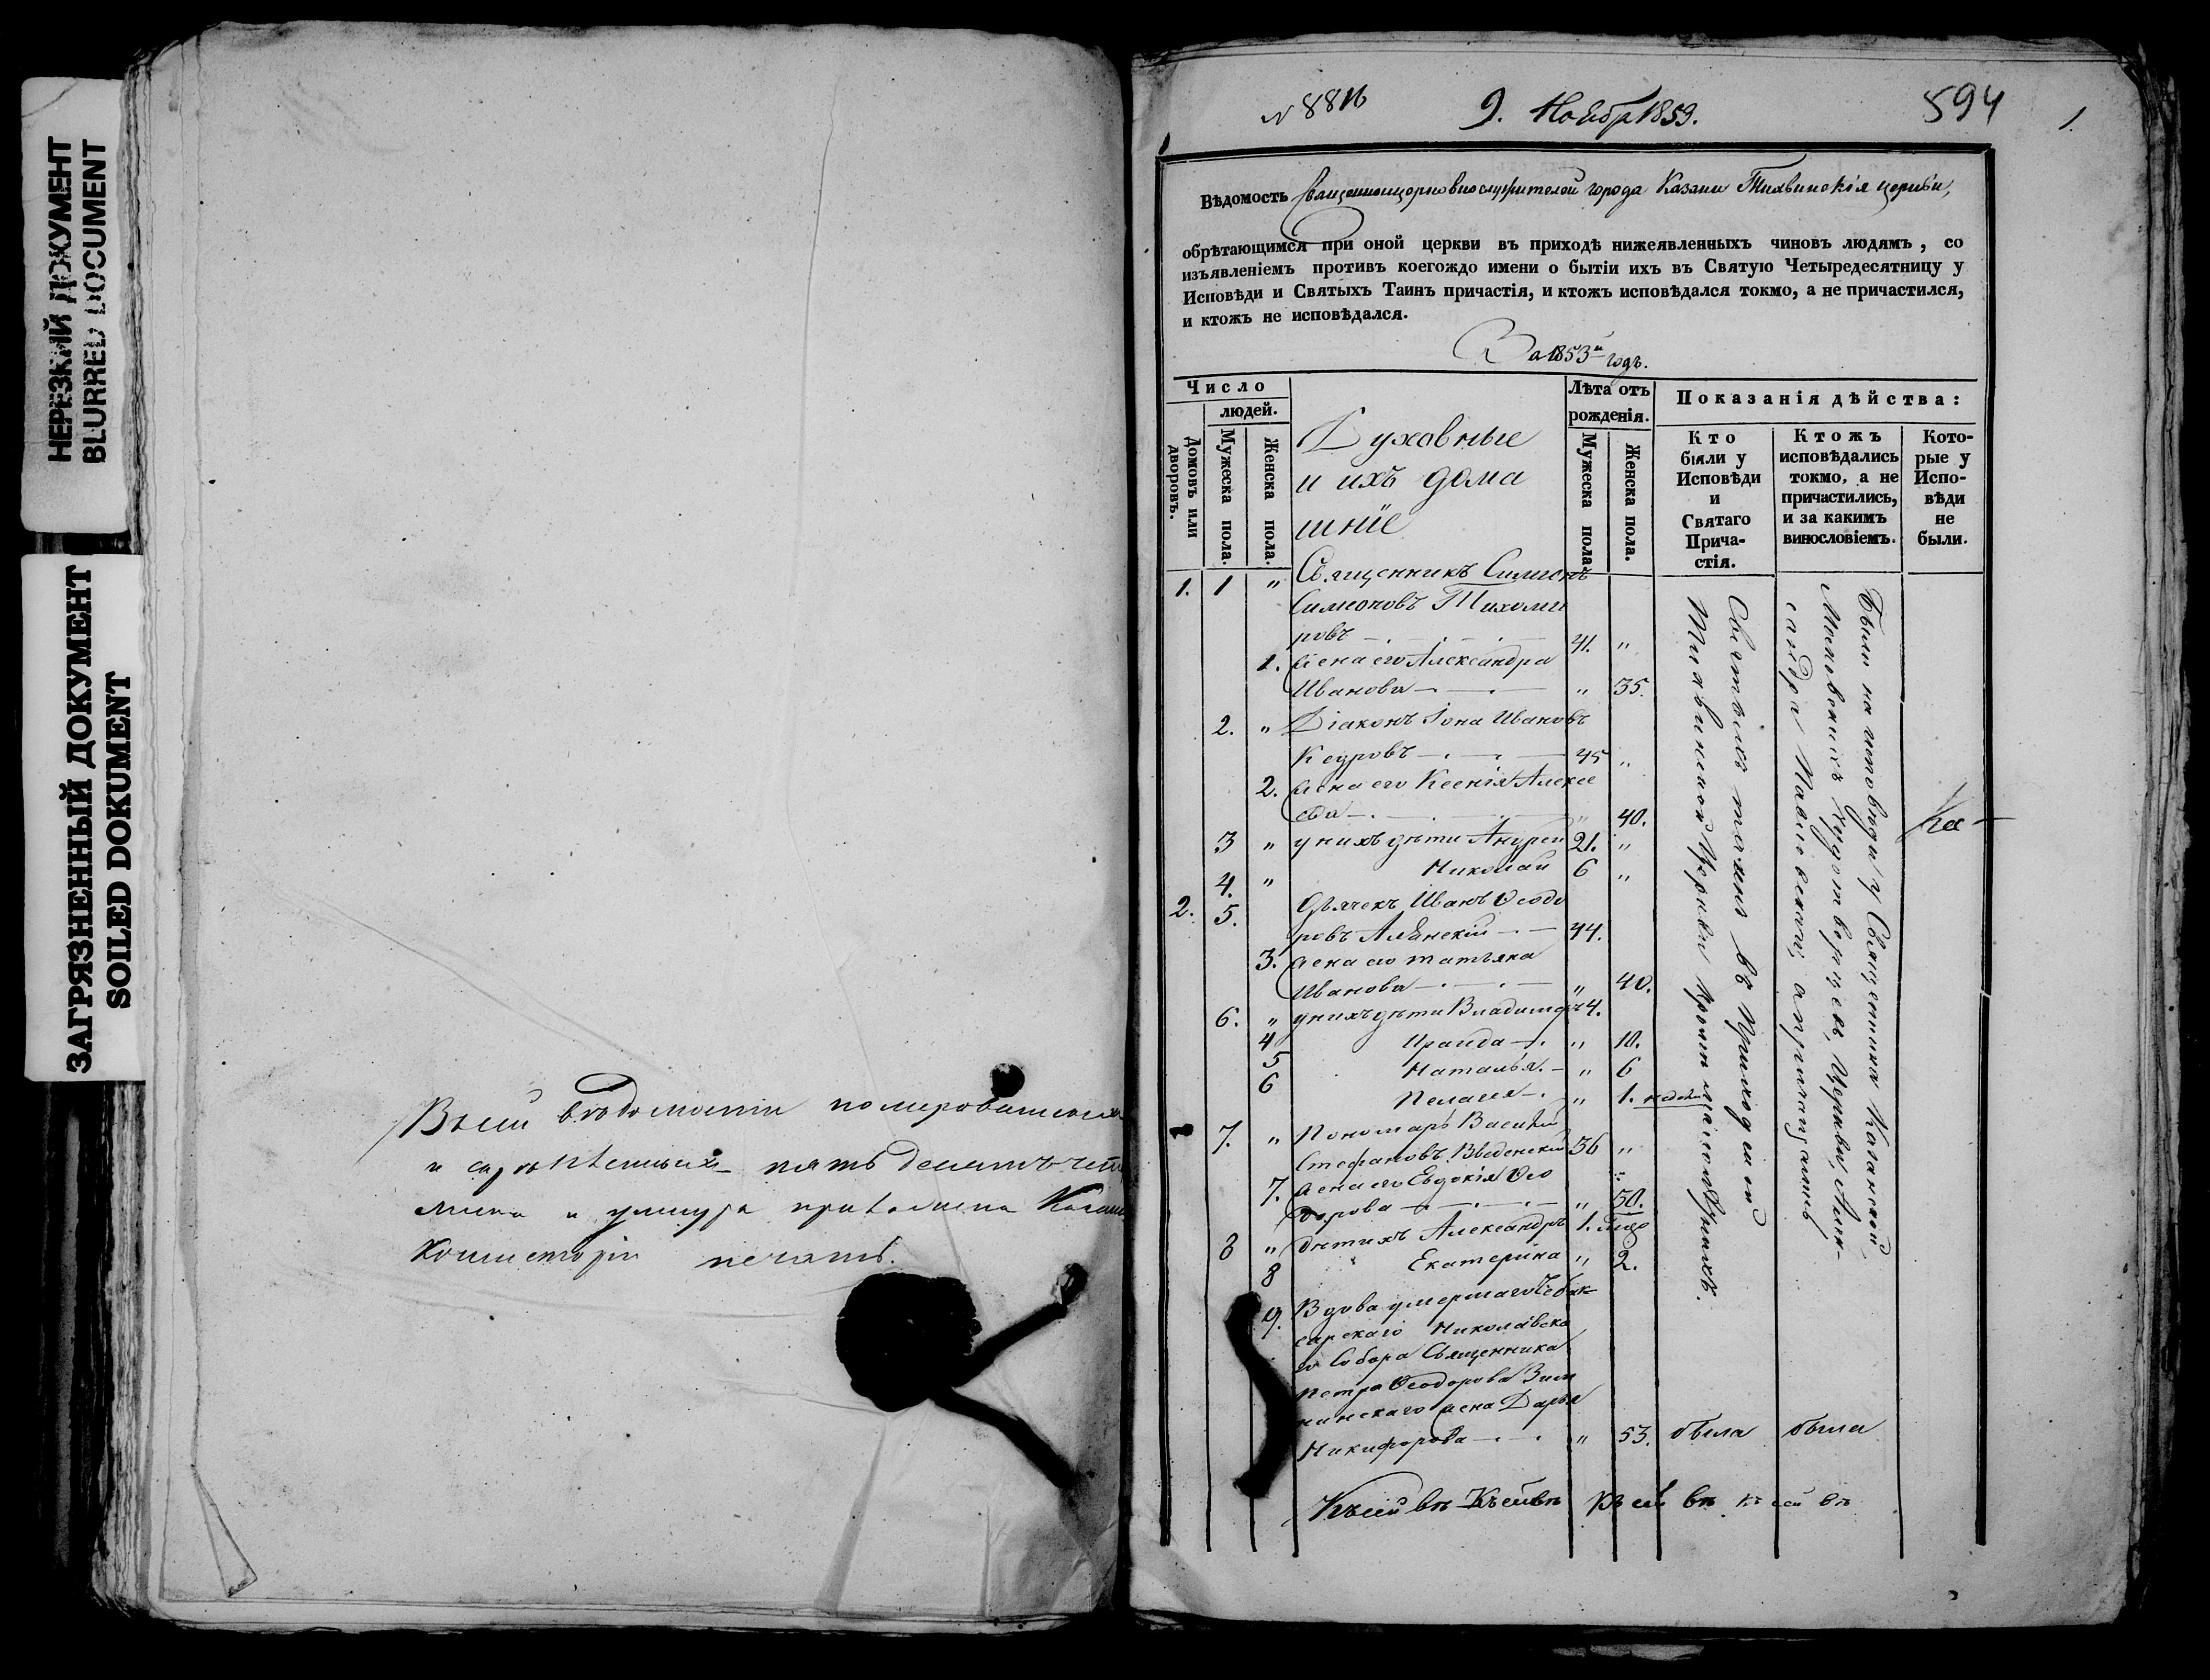 НЕРЕЗКИЙ ДОКУМЕНТ
BLURRED DOCUMENT
ЗАГРЯЗНЕННЫЙ ДОКУМЕНТ
SOILED DOKUMENT
Въ сей вѣдомости
и пять десятъ
листа и приложена
Консисторіи печать.
N 8816
9. Ноября 1853.
594
1.
Вѣдомость Священноцерковнослужителей города Казани Тихвинскія церкви,
обрѣтающимся при оной церкви въ приходѣ нижеявленныхъ чиновъ людямъ, со
изъявленіемъ противъ коегождо имени о бытіи ихъ въ Святую Четыредесятницу у
Исповѣди и Святыхъ Таинъ причастія, и ктожъ исповѣдался токмо, а не причастился,
и ктожъ не исповѣдался.
За 1853й годъ.
Число
людей.
Домовъ или дворовъ.
Мужеска пола.
Женска пола.
Духовные
и ихъ дома
шніе
Лѣта отъ
рожденія.
Мужеска пола.
Женска пола.
Показанія дѣйства:
Кто
были у
Исповѣди
и
Святаго
Прича-
стія.
Ктожъ
исповѣдались
токмо, а не
причастились,
и за какимъ
винословіемъ.
Кото-
рые у
Испо-
вѣди
не
были.
1. 1 " Священникъ Симеонъ
Симеоновъ Тихоми
ровъ 41. "
1. Жена его Александра
Иванова " 35.
2. " Діаконъ Іона Ивановъ
Кедровъ 45 "
2. Жена его Ксенія Алексе
ева " 40.
3 " у нихъ дѣти Андрей 21. "
4. " Николай 6 "
2. 5. Дьячекъ Иванъ Ѳеодо
ровъ 44.
3. Жена его Татьяна
Иванова " 40.
6. " у нихъ дѣти Владиміръ 4.
4 Ираида " 10.
5 Наталья " 6
6 Пелагея " 1. недели
7. " Пономарь Василій
Стефановъ Введенскій 36 "
7. Жена его Евдокія Ѳео
дорова " 30.
8 " дѣти ихъ Александръ 1.
8 Екатерина " 2.
9. Вдова умершаго Чебок
сарскаго Николаевска
го Собора Священника
Петра Ѳеодорова
жена Дарья
Никифорова " 53. была была
Святыхъ таинъ въ Приходской
Тихвинской Церкви
Были на исповѣди у Священника Казанской
Московскихъ Чудотворцевъ Церкви, Алек-
сандра
Къ сей вѣ Къ сей вѣ Къ сей вѣ Къ сей вѣ